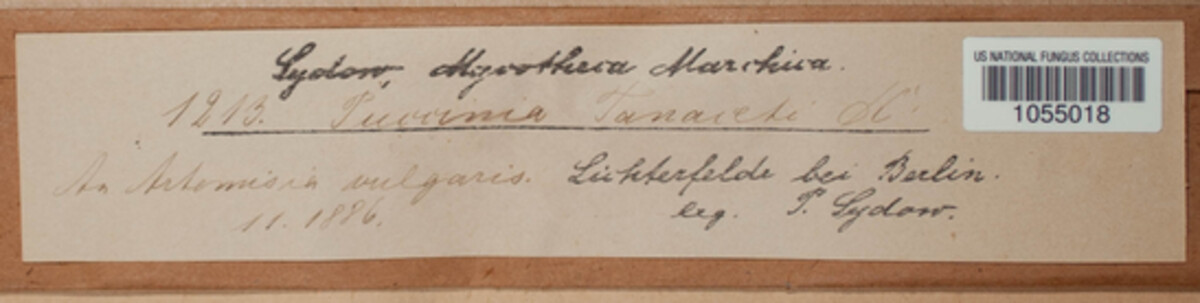 Sydow, Mycotheca Marchica.
1213. Puccinia Tanaceti
An Artemisia vulgaris. Lichterfelde bei Berlin.
11. 1886. leg. P. Sydow.
US NATIONAL FUNGUS COLLECTIONS
1055018